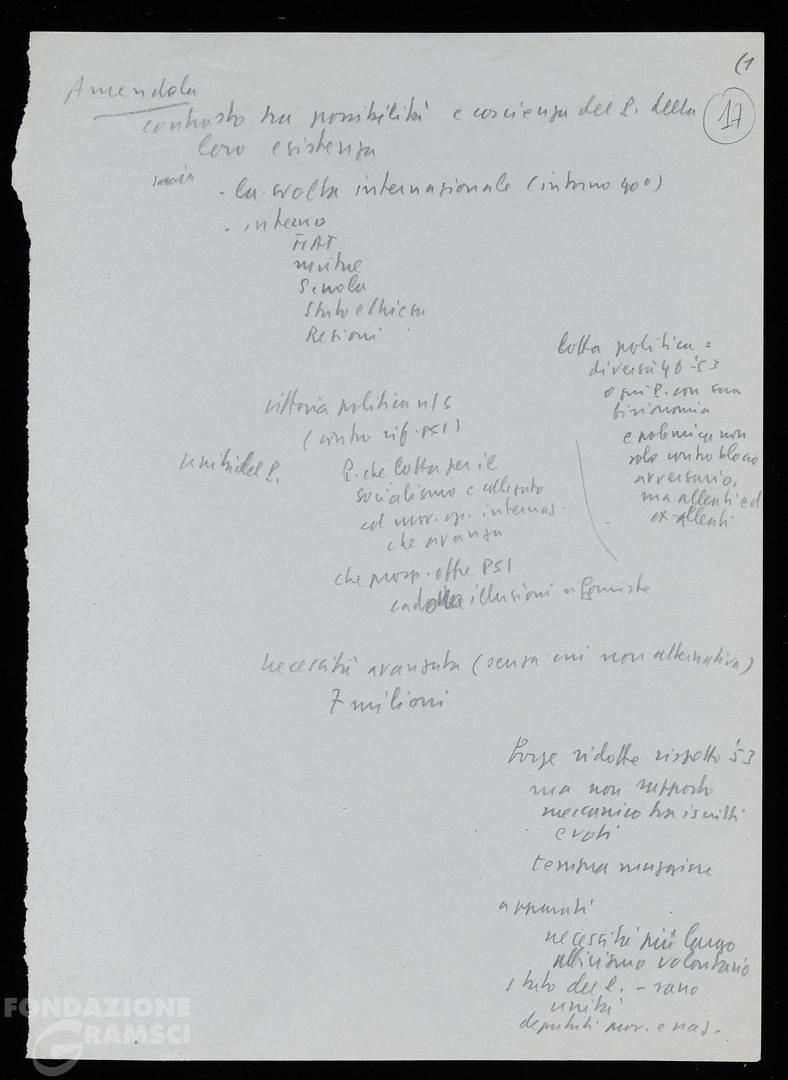 (1
17
Amendola
contrasto tra possibilità e coscienza del P. della
loro esistenza
- la svolta internazionale (intorno 40°)
- interno
FIAT
mutue
Scuola
Stato e Chiesa
Regioni
lotta politica =
diversa 46-53
ogni P. con sua
fisionomia
e polemica non
solo contro blocco
avversario,
ma alleati ed
ex-alleati
vittoria politica n/s
(contro rif. PSI)
Unità del P.
P. che lotta per il
socialismo e alleato
col mov. op. internaz.
che avanza
che prosp. offre PSI
illusioni riformiste
necessità avanzata (senza cui non alternativa)
7 milioni
Forze ridotte rispetto '53
ma non rapporto
meccanico tra iscritti
e voti
tempra maggiore
apparati
necessità più largo
attivismo volontario
stato del P. - sano
unità
deputati prov. e naz.
FONDAZIONE
GRAMSCI
onlus